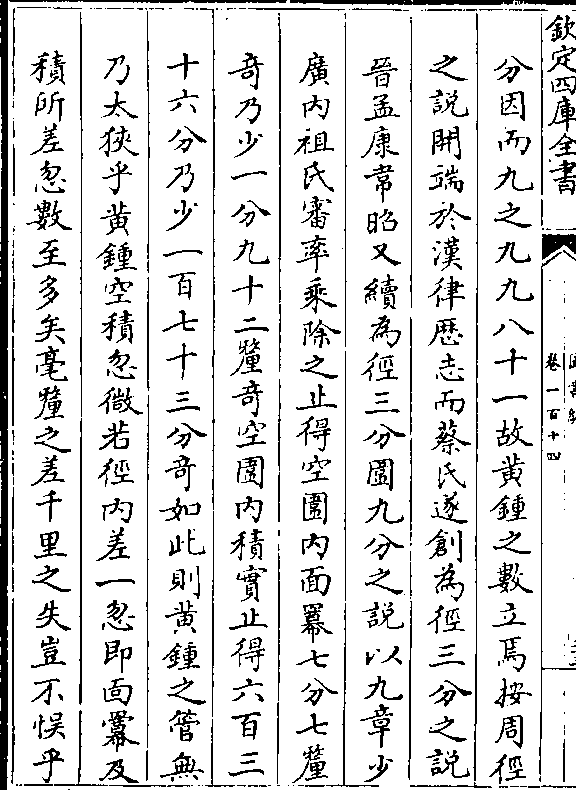 欽定四庫全書
卷一百十四
分因而九之九九八十一故黃鍾之數立焉按周徑
之說開端於漢律歴志而蔡氏遂創為徑三分之說
晉孟康韋昭又續為徑三分圍九分之說以九章少
廣內祖氏審率乗除之止得空圍內面羃七分七釐
奇乃少一分九十二釐奇空圍內積實止得六百三
十六分乃少一百七十三分奇如此則黃鍾之管無
乃太狹乎黃鍾空積忽微若徑內差一忽即面羃及
積所差忽數至多矣毫釐之差千里之失豈不悞乎